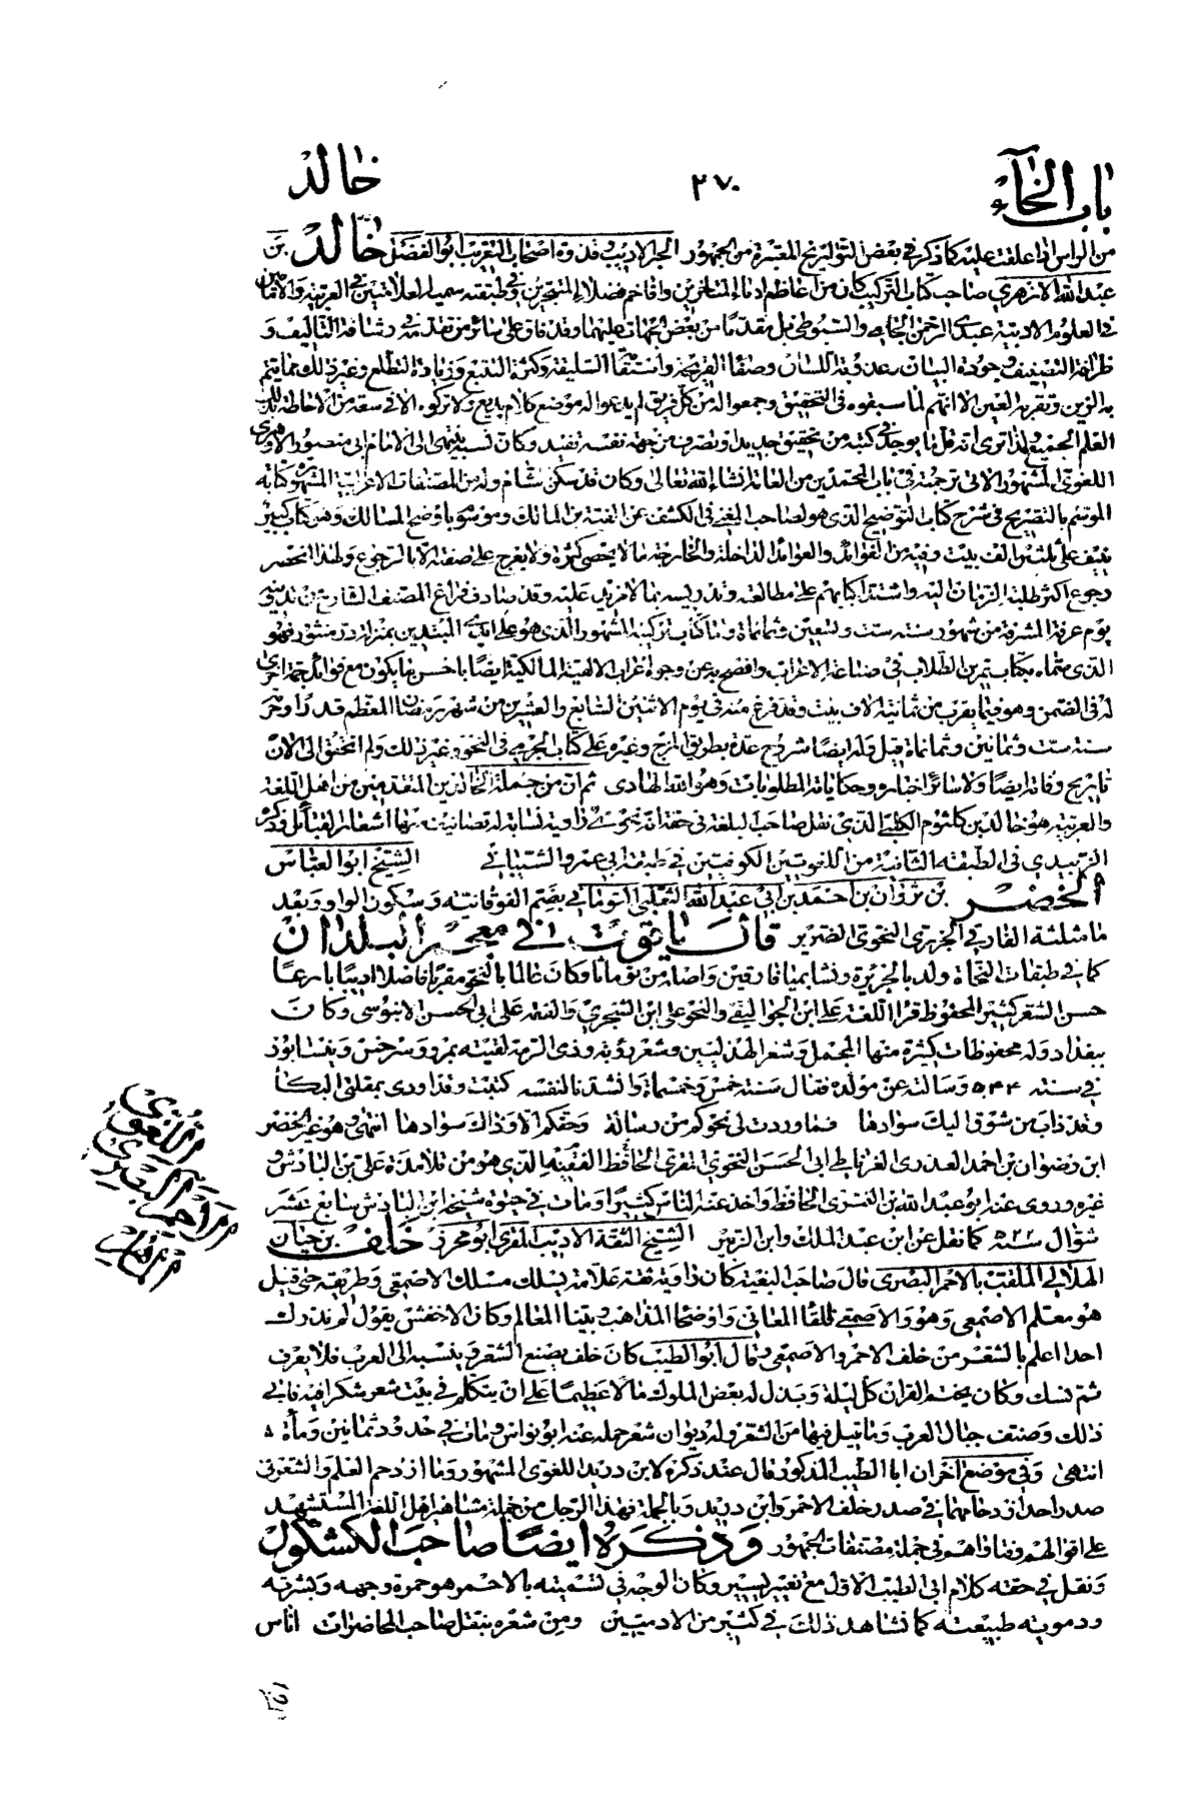 باب الخاء
٢٧٠
خالد
من الراس اذا علقت عليه كما ذكر في بعض التواريخ المعتبرة من الجمهور الحبر الاديب قدوة اصحاب التقريب ابو الفضل خالد بن
عبد الله الازهري صاحب كتاب التركيب كان من اعاظم ادباء المتاخرين وافاخم فضلاء المتبحرين وفي طبقته سميا العلامتين في العربية والامامين
في العلوم الادبية عبدي الرحمن الجامي والسيوطي قبل مقدما من بعض الجهات عليهما وقد فاق على سائر من تقدمه في رشاقة التاليف و
ظرافة التصنيف وجودة البيان وعذوبة اللسان وصفاء القريحة واستقامة السليقة وكثرة التتبع وزيادة التطلع وغير ذلك مما يتم
به الزين وتقر به العين الا انهم لما سبقوه في التحقيق وجمعوا له من كل فريق لم يدعوا له موضع كلام بديع ولا تركوه الا في سعة من الاحاطة بذلك
العلم الجميع ولذا ترى انه قل ما يوجد في كتبه من تحقيق جديد او تصرف من جهة نفسه تفيد وكان نسبه ينتهى الى الامام ابي منصور الازهري
اللغوي المشهور الاتي ترجمته في باب المحمدين من العامة انشاء الله تعالى وكان قد سكن بشام وله من المصنفات الاعرابية المشهورة كتابه
الموسم بالتصريح في شرح كتاب التوضيح الذي هو لصاحب المغني في الكشف عن الفية ابن المالك وموسوم باوضح المسالك وهو كتاب كبير
ينيف على ثلثين الف بيت وفيه من الفوائد والعوائد الداخلة والخارجة ما لا يحصى كثرة ولا يفرج على صفته الا بالرجوع ولهذا انحصر
رجوع اكثر طلبة الزمان اليه واشتد اكبابهم على مطالعته وتدريسه بما لا مزيد عليه وقد صادف فراغ المصنف الشارح من تدوينه
يوم عرفة المشرفة من شهور سنة ست وتسعين وثمانماة واما كتاب تركيبه المشهور الذي هو على ايدي المبتدين بمنزلة در منثور فهو
الذي سماه بكتاب تمرين الطلاب في صناعة الاعراب وافصح به عن وجوه اعراب الالفية المالكية ايضا باحسن ما يكون مع فوائد جمة اخرى
له في الضمن وهو فيما يقرب من ثمانية الاف بيت وقد فرغ منه في يوم الاثنين السابع والعشرين من شهر رمضان المعظم
سنة ست وثمانين وثمانماة قيل وله ايضا شروح عدة بطريق المزج وغيره على كتاب الجرومي في النحو وغير ذلك ولم اتحقق الى الان
تاريخ وفاته ايضا ولا سائر اخباره وحكاياته المطلوبات وهو الله الهادى ثم ان من جملة الخالدين المتقدمين من اهل اللغة
والعربية هو خالد بن كلثوم الكلبي الذي نقل صاحب البلغة في حقه انه نحوي راوية نسابة له تصانيف منها اشعار القبائل وذكره
الزبيدي في الطبقة الثانية من اللغويين الكوفيين في طبقة ابي عمرو الشيباني الشيخ ابو العباس
الخضر بن ثروان بن احمد بن ابي عبد الله الثعلبي التوماثي بضم الفوقانية وسكون الواو وبعد
ما مثلثة الفارقي الجزري النحوي الضرير قال ياقوت في معجم البلدان
كما في طبقات النحاة ولد بالجزيرة ونشا بميافارقين واصله من توماثا وكان عالما بالنحو مقريا فاضلا اديبا بارعا
حسن الشعر كثير المحفوظ قرا اللغة على ابن الجواليقي والنحو على ابن الشجري والفقه على ابي الحسن الابنوسي وكان
ببغداد وله محفوظات كثيرة منها المجمل وشعر الهذليين وشعر رؤبة وذي الرمة لقيته بمرو وسرخس ونيشابور
في سنة ٥٤٤ وسالته عن مولده فقال سنة خمس وخمسماة وانشدنا لنفسه كتبت وقد اودى بمقلتي البكا
وقد ذاب من شوق اليك سوادها فما وردت لي نحوكم من رسالة وحقكم الا وذاك سوادها انتهى وهو غير الخضر
ابن رضوان بن احمد العذري الغرناطي ابي الحسن النحوي المقري الحافظ الفقيه الذي هو من تلامذة علي بن البادش و
غيره وروى عنه ابو عبد الله بن النميري الحافظ واخذ عنه الناس كثيرا ومات في حيوة شيخه ابن البادش سابع عشر
شوال سنة ٥٢٢ كما نقل عن ابن عبد الملك وابن الزبير الشيخ الثقة الاديب المقري ابو محرز خلف بن حيان
الهلالي الملقب بالاحمر البصري قال صاحب البغية كان راوية ثقة علامة يسلك مسلك الاصمعي وطريقه حتى قيل
هو معلم الاصمعي وهو والاصمعي فتقا المعاني واوضحا المذاهب وبينا المعالم وكان الاخفش يقول لم ندرك
احدا اعلم بالشعر من خلف الاحمر والاصمعي وقال ابو الطيب كان خلف يصنع الشعر وينسبه الى العرب فلا يعرف
ثم نسك وكان يختم القران كل ليلة وبذل له بعض الملوك مالا عظيما على ان يتكلم في بيت شعر شك فيه فابى
ذلك وصنف جبال العرب وما قيل فيها من الشعر وله ديوان شعر حمله عنه ابو نواس ومات في حدود ثمانين وماة
انتهى وفي موضع اخر ان ابا الطيب المذكور قال عند ذكره لابن دريد اللغوي المشهور وما ازدحم العلم والشعر في
صدر احد ازدحامهما في صدر خلف الاحمر وابن دريد وبالجملة فهذا الرجل من جملة مشاهير اهل اللغة المستشهد
على اقوالهم وفتاواهم في جملة مصنفات الجمهور وذكره ايضا صاحب الكشكول
ونقل في حقه كلام ابي الطيب الاول مع تغيير يسير وكان الوجه في تسميته بالاحمر هو حمرة وجهه وبشرته
ودموية طبيعته كما نشاهد ذلك في كثير من الادميين ومن شعره بنقل صاحب المحاضرات اناس
اللغوي
البصري
الاحمر